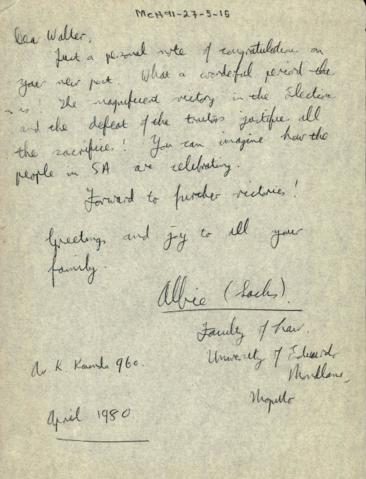 MCH91-27-5-15
Dear Walter,
Just a personal note of congratulation on
your new post. What a wonderful period this
is! The magnificent victory in the Election
and the defeat of the traitors justifies all
the sacrifices! You can imagine how the
people in SA are celebrating.
Forward to further victories!
Greetings and joy to all your
family.
Albie (Sachs).
Faculty of Law.
University of Eduardo
Mondlane,
Maputo
Av K Kaunda 960.
April 1980